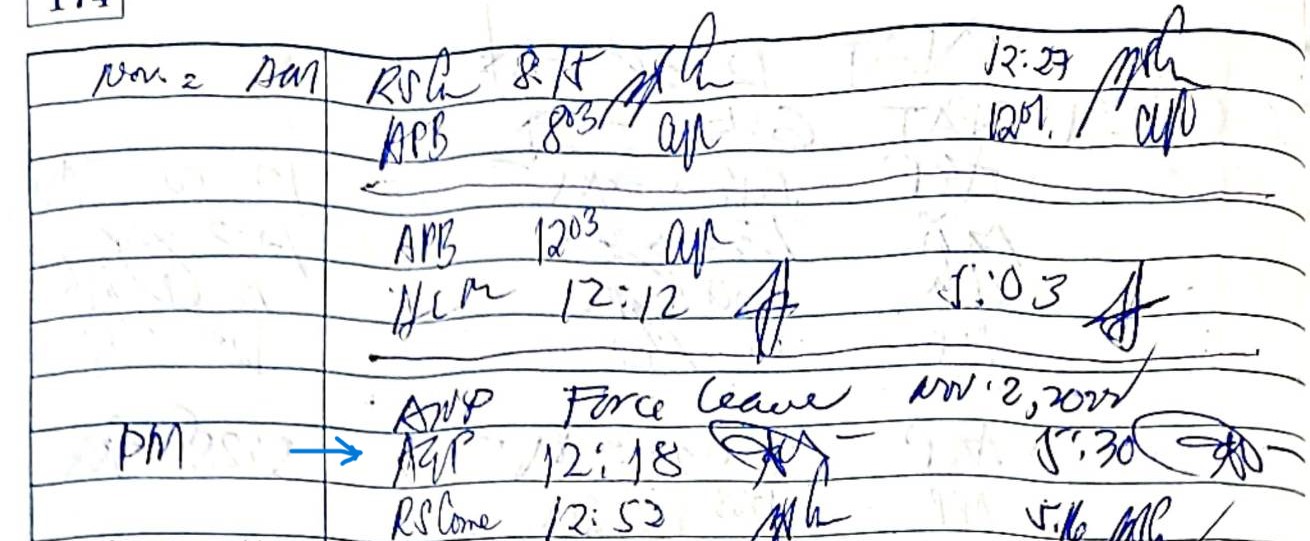 174
Nov. 2 AM RSC 8:15 12:27
APB 8:03 12:01
APB 12:03
HLM 12:12 5:03
Force Leave Nov. 2, 2022
PM 12:18 5:30
RSCome 12:52 5:16